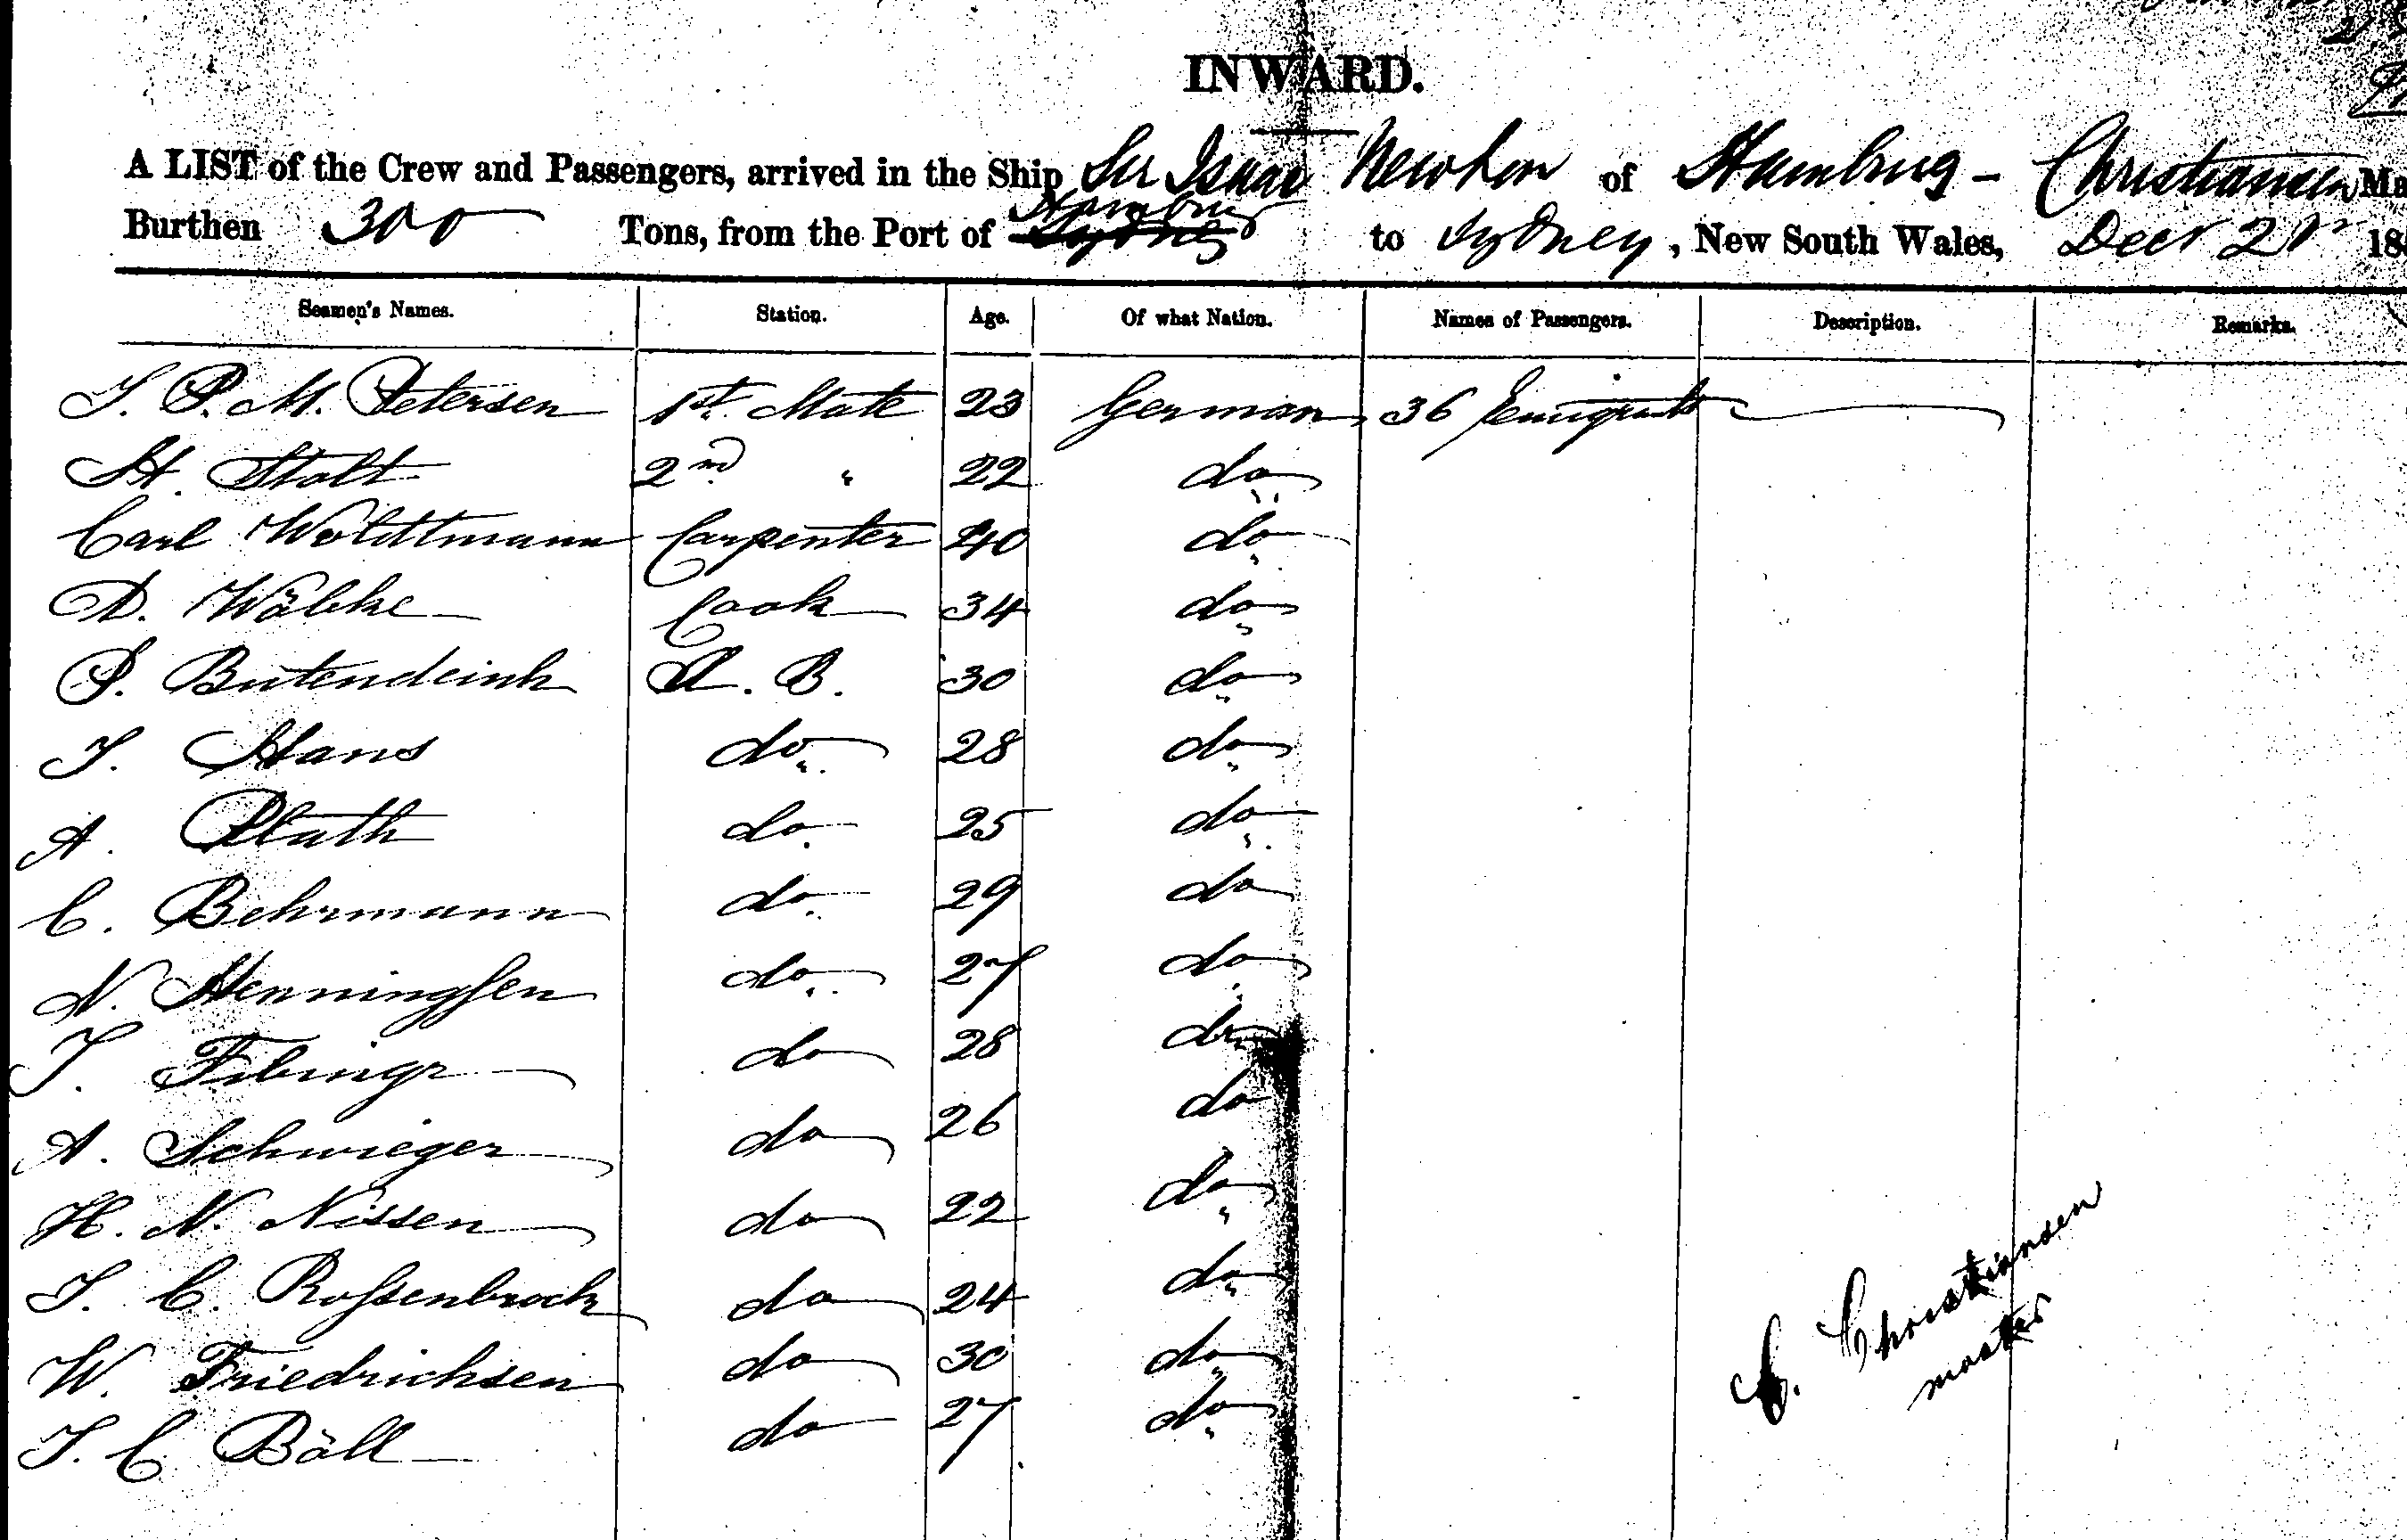 INWARD.
A LIST of the Crew and Passengers, arrived in the Ship Sir Isaac Newton of Hamburg - Christiansen Ma
Hamburg
Burthen 300 Tons, from the Port of Sydney to Sydney, New South Wales, Decr 18
Seamen's Names. Station. Age. Of what Nation. Names of Passengers. Description. Remarks.
J. P. M. Petersen 1st. Mate 23 German 36 Emigrants
H. Stolt 2nd " 22 do
Carl Woldtmann Carpenter 40 do
D. Wöbke Cook 34 do
P. Butendeink A. B. 30 do
J. Hans do 28 do
A. Plath do 25 do
C. Behrmann do 29 do
N. Henningsen do 27 do
J. do 28 do
A. Schwieger do 26 do
H. N. Nissen do 22 do
J. C. Rossenbrock do 24 do
W. Friedrichsen do 30 do
J. C. Böll do 27 do
C. Christiansen
master